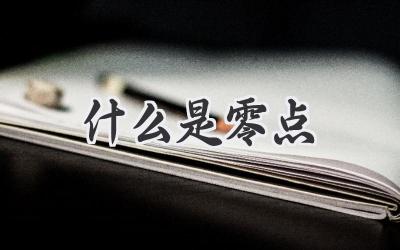 什么是零点